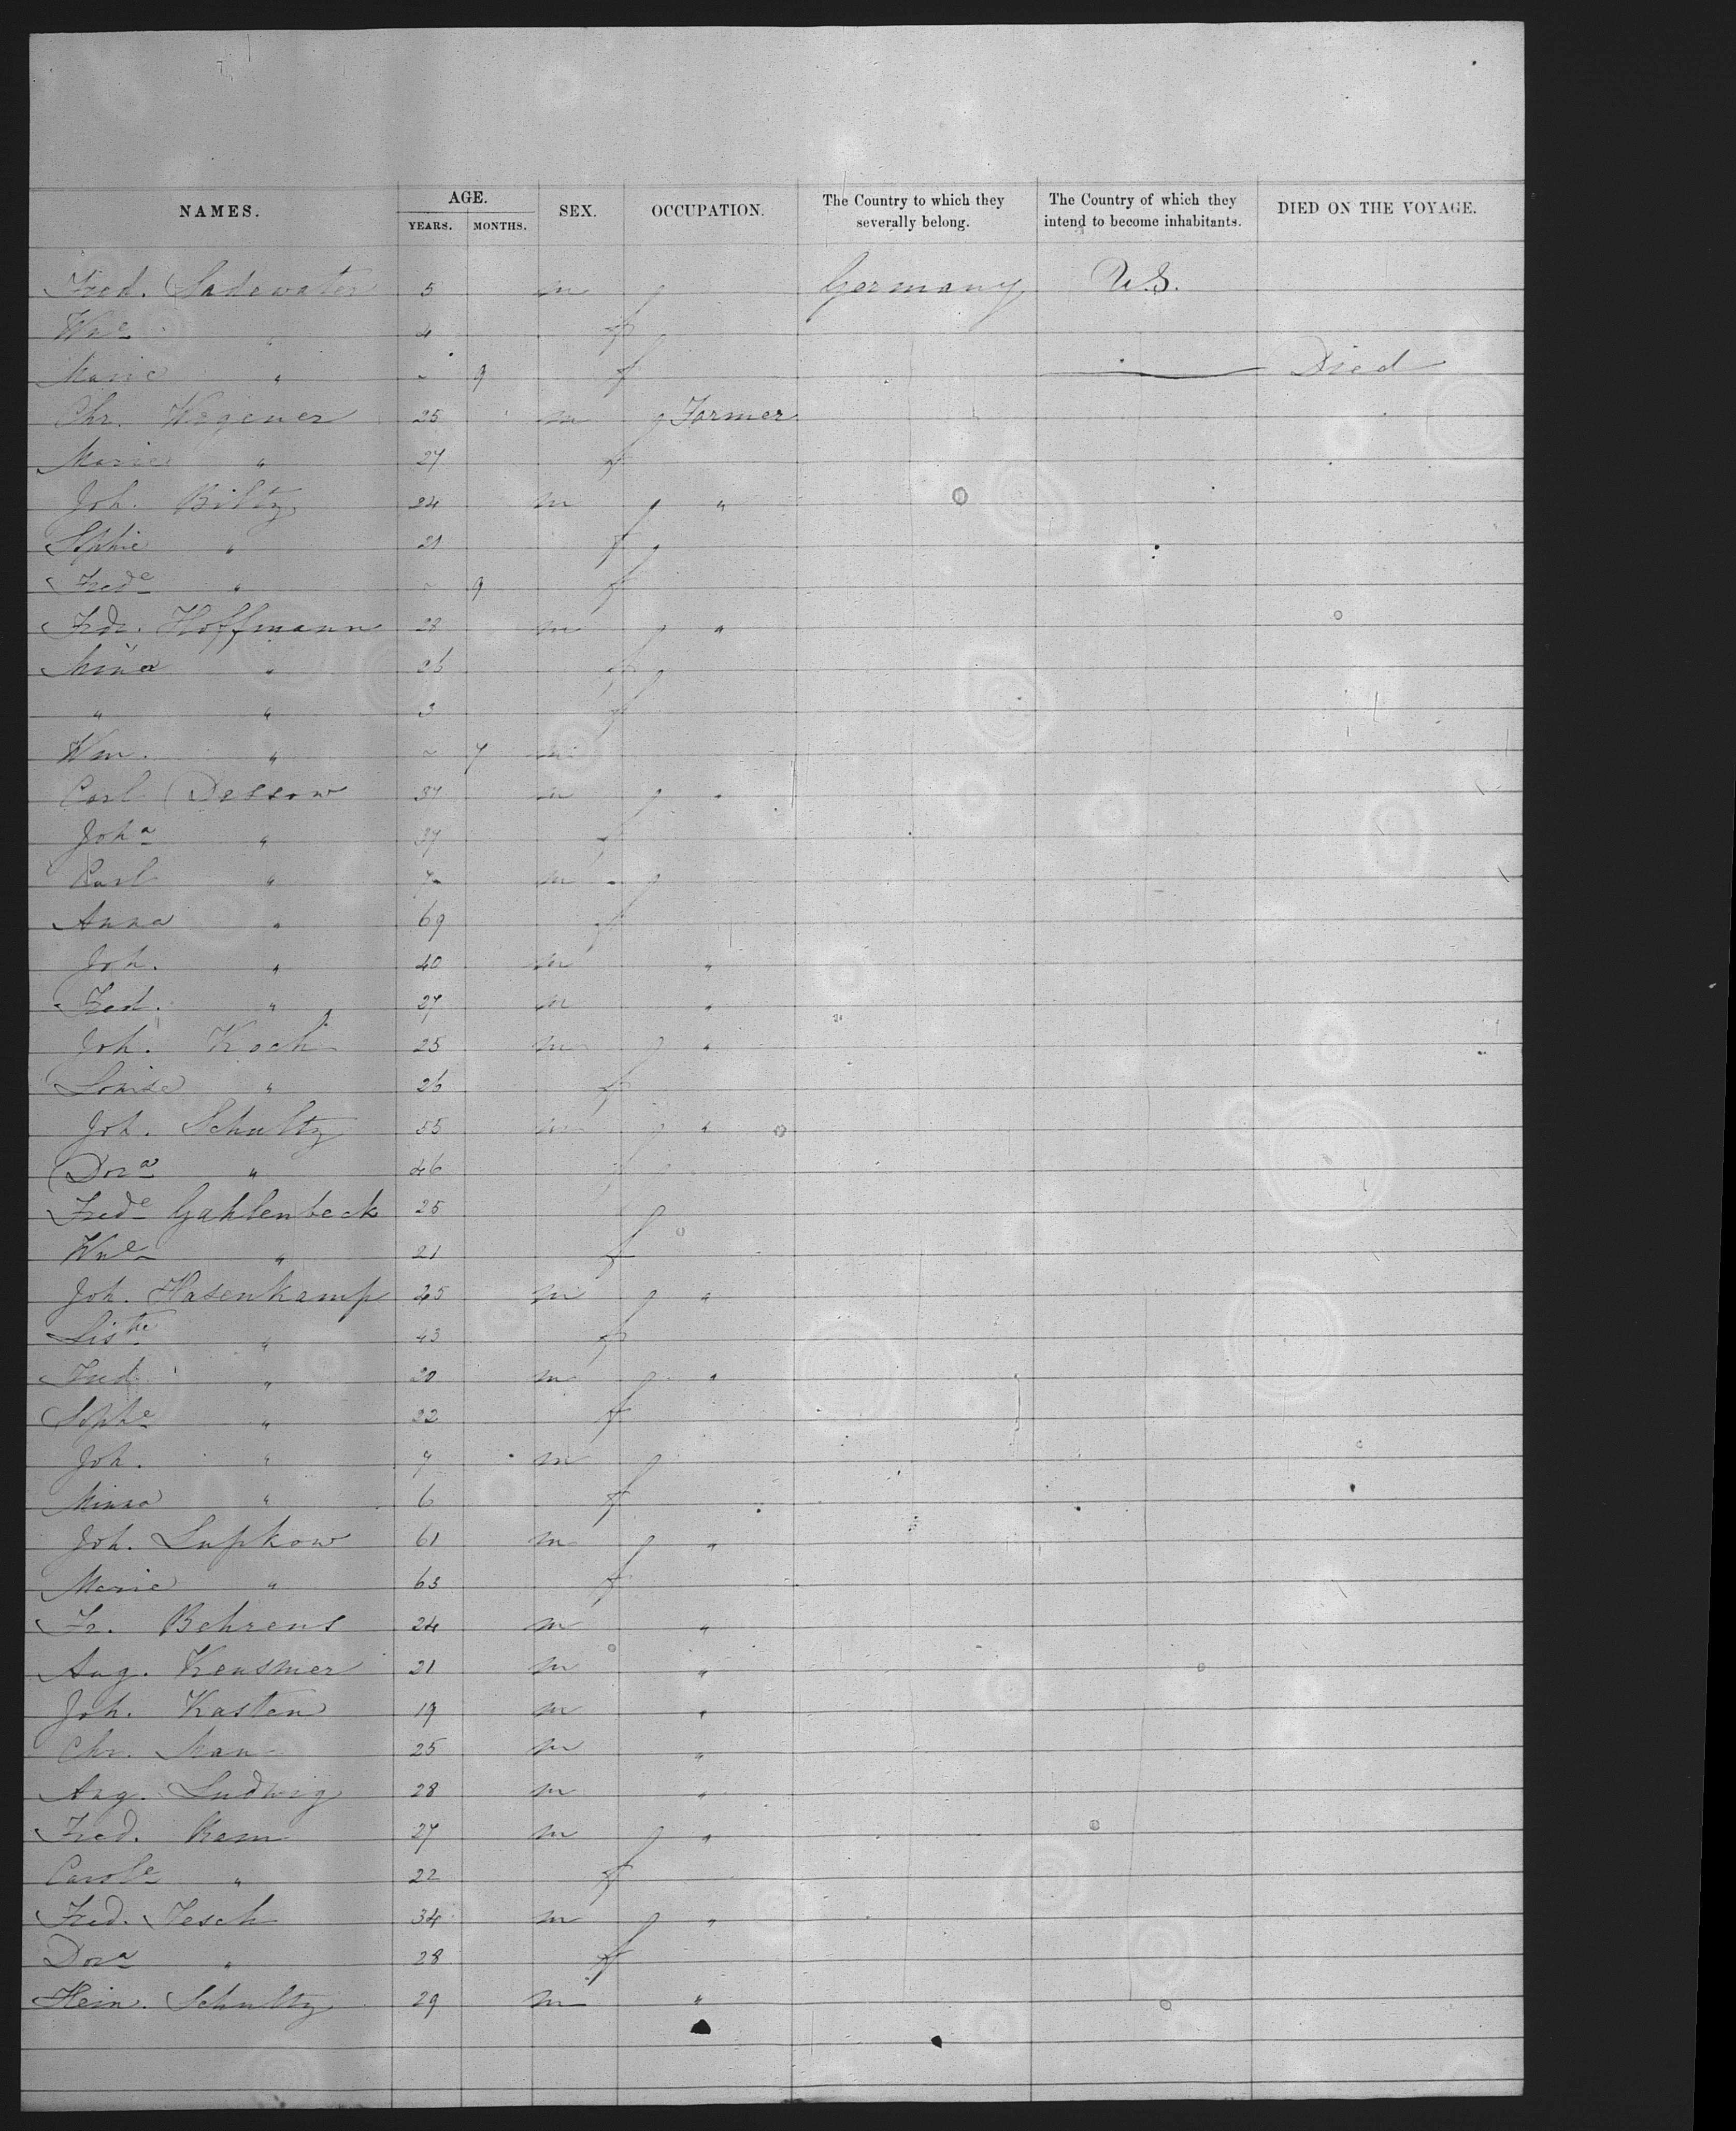 NAMES. AGE. SEX. OCCUPATION. The Country to which they severally belong. The Country of which they intend to become inhabitants. DIED ON THE VOYAGE.
YEARS. MONTHS.
Fred. Sadewater 5 m Germany U.S.
Wme " 4 f
Marie " ~ 9 f Died
Chr. Wegener 25 m Farmer
Marie " 27 f
Joh. Biltz 24 m "
Sophie " 21 f
Frede " ~ 9 f
Fdr. Hoffmann 28 m "
Mina " 26 f
" " 3 f
Wm. " ~ 7 m
Carl Dessow 37 m "
Joha " 37 f
Karl " 7 m
Anna " 69 f
Joh. " 40 m "
Fred. " 27 m "
Joh. Koch 25 m "
Louise " 26 f
Joh. Schultz 55 m "
Dora " 46 f
Frede Gahlenbeck 25
Wme " 21 f
Joh. Hasenkamp 45 m "
Listte " 43 f
Fred. " 20 m "
Sophe " 22 f
Joh. " 7 m
Minna " 6 f
Joh. Lupkow 61 m "
Marie " 63 f
Fr. Behrens 24 m "
Aug. 21 m "
Joh. Kasten 19 m "
Chr. Mau 25 m "
Aug. Ludwig 28 m "
Fred. 27 m "
Carole " 22 f
Fred. Jesch 34 m "
Dora " 28 f
Hein. Schultz 29 m "